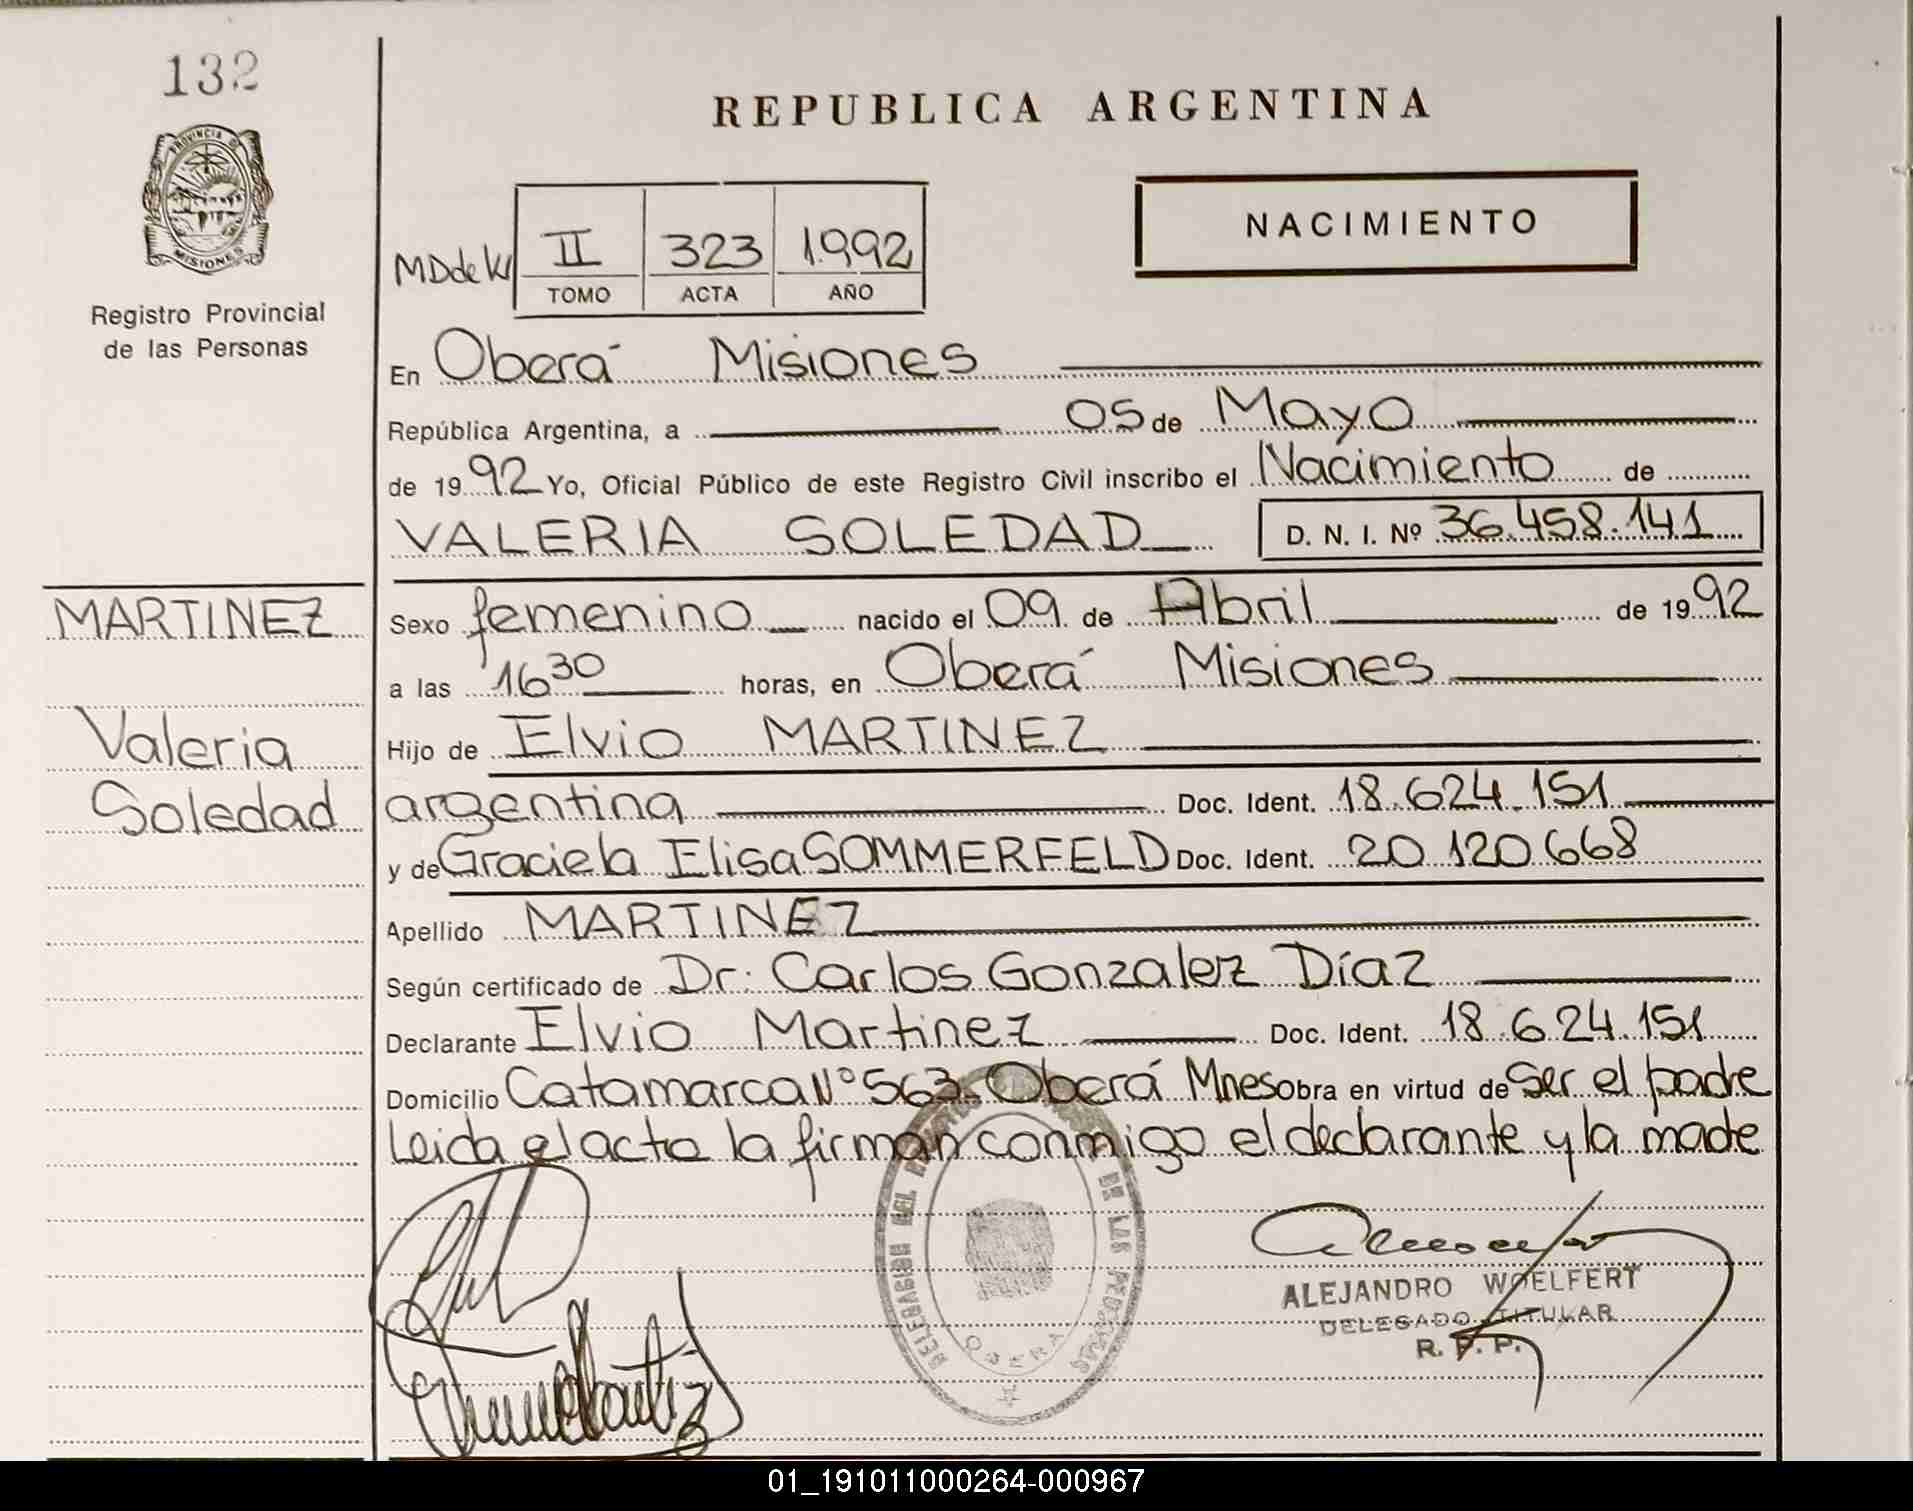 132
PROVINCIA DE
MISIONES
Registro Provincial
de las Personas
MARTINEZ
Valeria
Soledad
REPUBLICA ARGENTINA
NACIMIENTO
II 323 1992
TOMO ACTA AÑO
En Oberá Misiones
República Argentina, a 05 de Mayo
de 1992 Yo, Oficial Público de este Registro Civil inscribo el Nacimiento de
VALERIA SOLEDAD D. N. I. Nº 36.458.141
Sexo femenino nacido el 09 de Abril de 1992
a las 16 30 horas, en Oberá Misiones
Hijo de Elvio MARTINEZ
argentina Doc. Ident. 18.624.151
y de Graciela Elisa SOMMERFELD Doc. Ident. 20 120 668
Apellido MARTINEZ
Según certificado de Dr: Carlos Gonzalez Díaz
Declarante Elvio Martinez Doc. Ident. 18.624.151
Domicilio Catamarca Nº 563 Oberá Mnes obra en virtud de ser el padre
Leida el acta la firman conmigo el declarante y la made
DELEGACION DEL REGISTRO DE LAS PERSONAS
OBERA
ALEJANDRO WOELFERT
DELEGADO TITULAR
R. P. P.
01_191011000264-000967